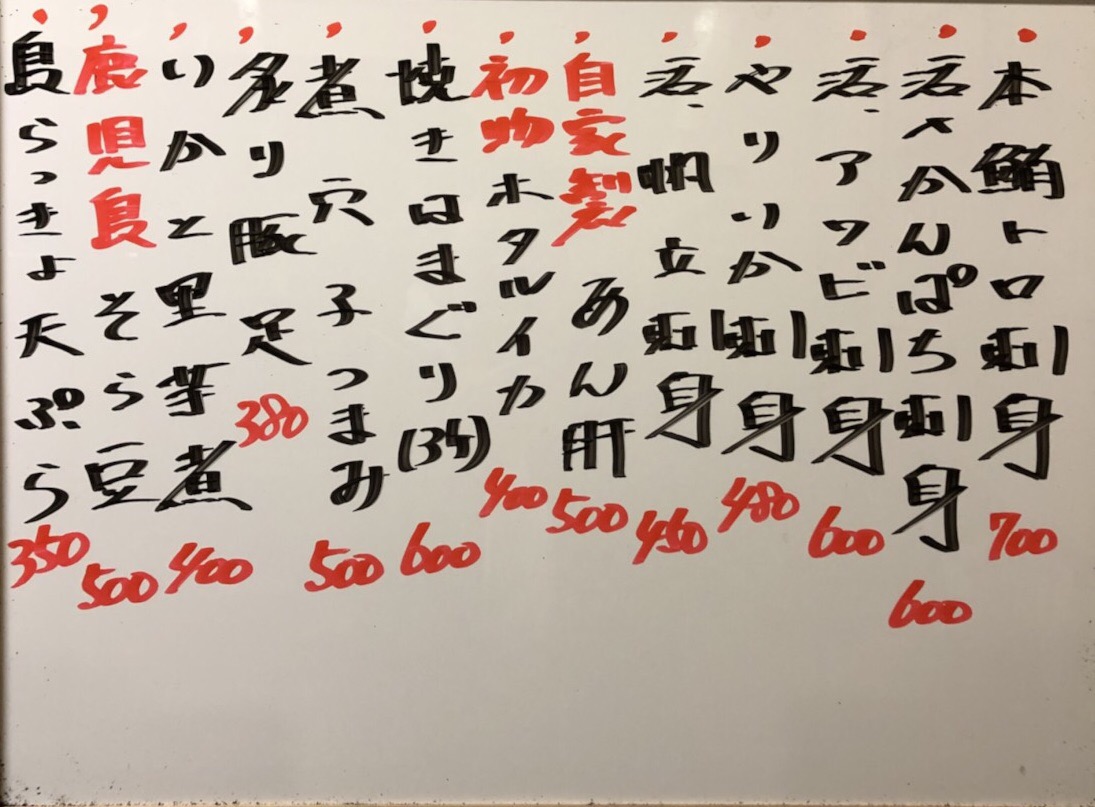 本鮪トロ刺身 700
活〆かんぱち刺身 600
活アワビ刺身 600
やりいか刺身 480
活帆立刺身 450
自家製あん肝 500
初物ホタルイカ 400
焼きはまぐり(3ケ) 600
煮穴子つまみ 500
炙り豚足 380
いかと里芋煮 400
鹿児島そら豆 500
島らっきょ天ぷら 350